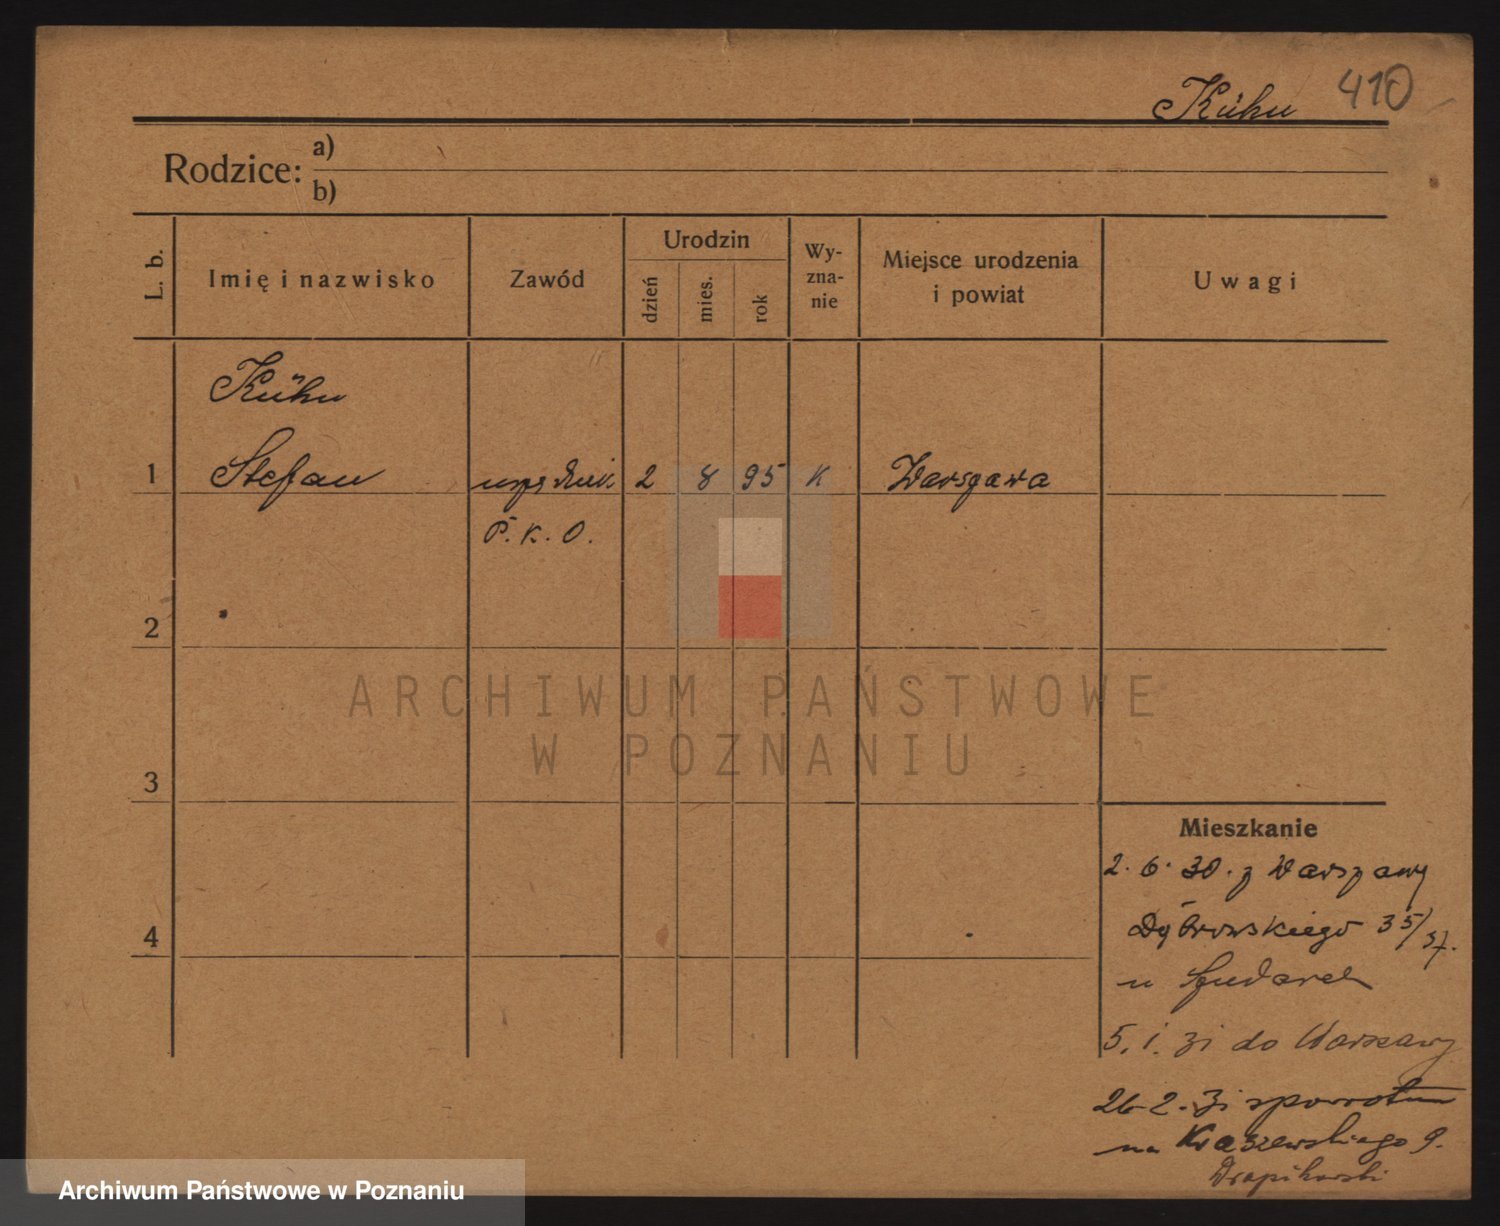 Kühn 410
Rodzice: a)
b)
L. b. Imię i nazwisko Zawód Urodzin dzień mies. rok Wy-zna-nie Miejsce urodzenia i powiat Uwagi
Kühn
1 Stefan urzędnik 2 8 95 K Warszawa
P. K. O.
2
ARCHIWUM PAŃSTWOWE
W POZNANIU
3
Mieszkanie
2. 6. 30. z Warszawy
4 Dąbrowskiego 35/37.
u
5. 1. 31 do Warszawy
26 2. 31 spowrotem
na Kraszewskiego 9.
Drapikowski
Archiwum Państwowe w Poznaniu